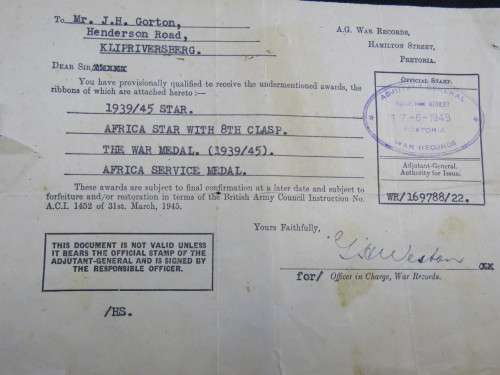 To Mr. J.H. Gorton,
Henderson Road,
KLIPRIVERSBERG.
A.G. WAR RECORDS,
HAMILTON STREET,
PRETORIA.
DEAR SIR/
You have provisionally qualified to receive the undermentioned awards, the
ribbons of which are attached hereto :—
1939/45 STAR.
AFRICA STAR WITH 8TH CLASP.
THE WAR MEDAL. (1939/45).
AFRICA SERVICE MEDAL.
OFFICIAL STAMP.
ADJUTANT GENERAL
STREET
17-6-1949
PRETORIA
WAR RECORDS
Adjutant-General.
Authority for Issue.
WR/169788/22.
These awards are subject to final confirmation at a later date and subject to
forfeiture and/or restoration in terms of the British Army Council Instruction No.
A.C.I. 1452 of 31st. March, 1945.
Yours Faithfully,
Weston
for/ Officer in Charge, War Records.
THIS DOCUMENT IS NOT VALID UNLESS
IT BEARS THE OFFICIAL STAMP OF THE
ADJUTANT-GENERAL AND IS SIGNED BY
THE RESPONSIBLE OFFICER.
/HS.